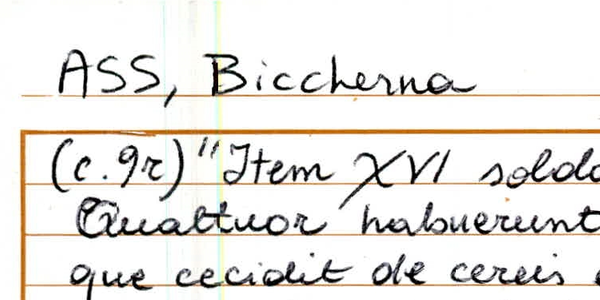 ASS, Biccherna
(c. 9r) "Item XVI soldo
Quattuor habuerunt
que cecidit de cereis